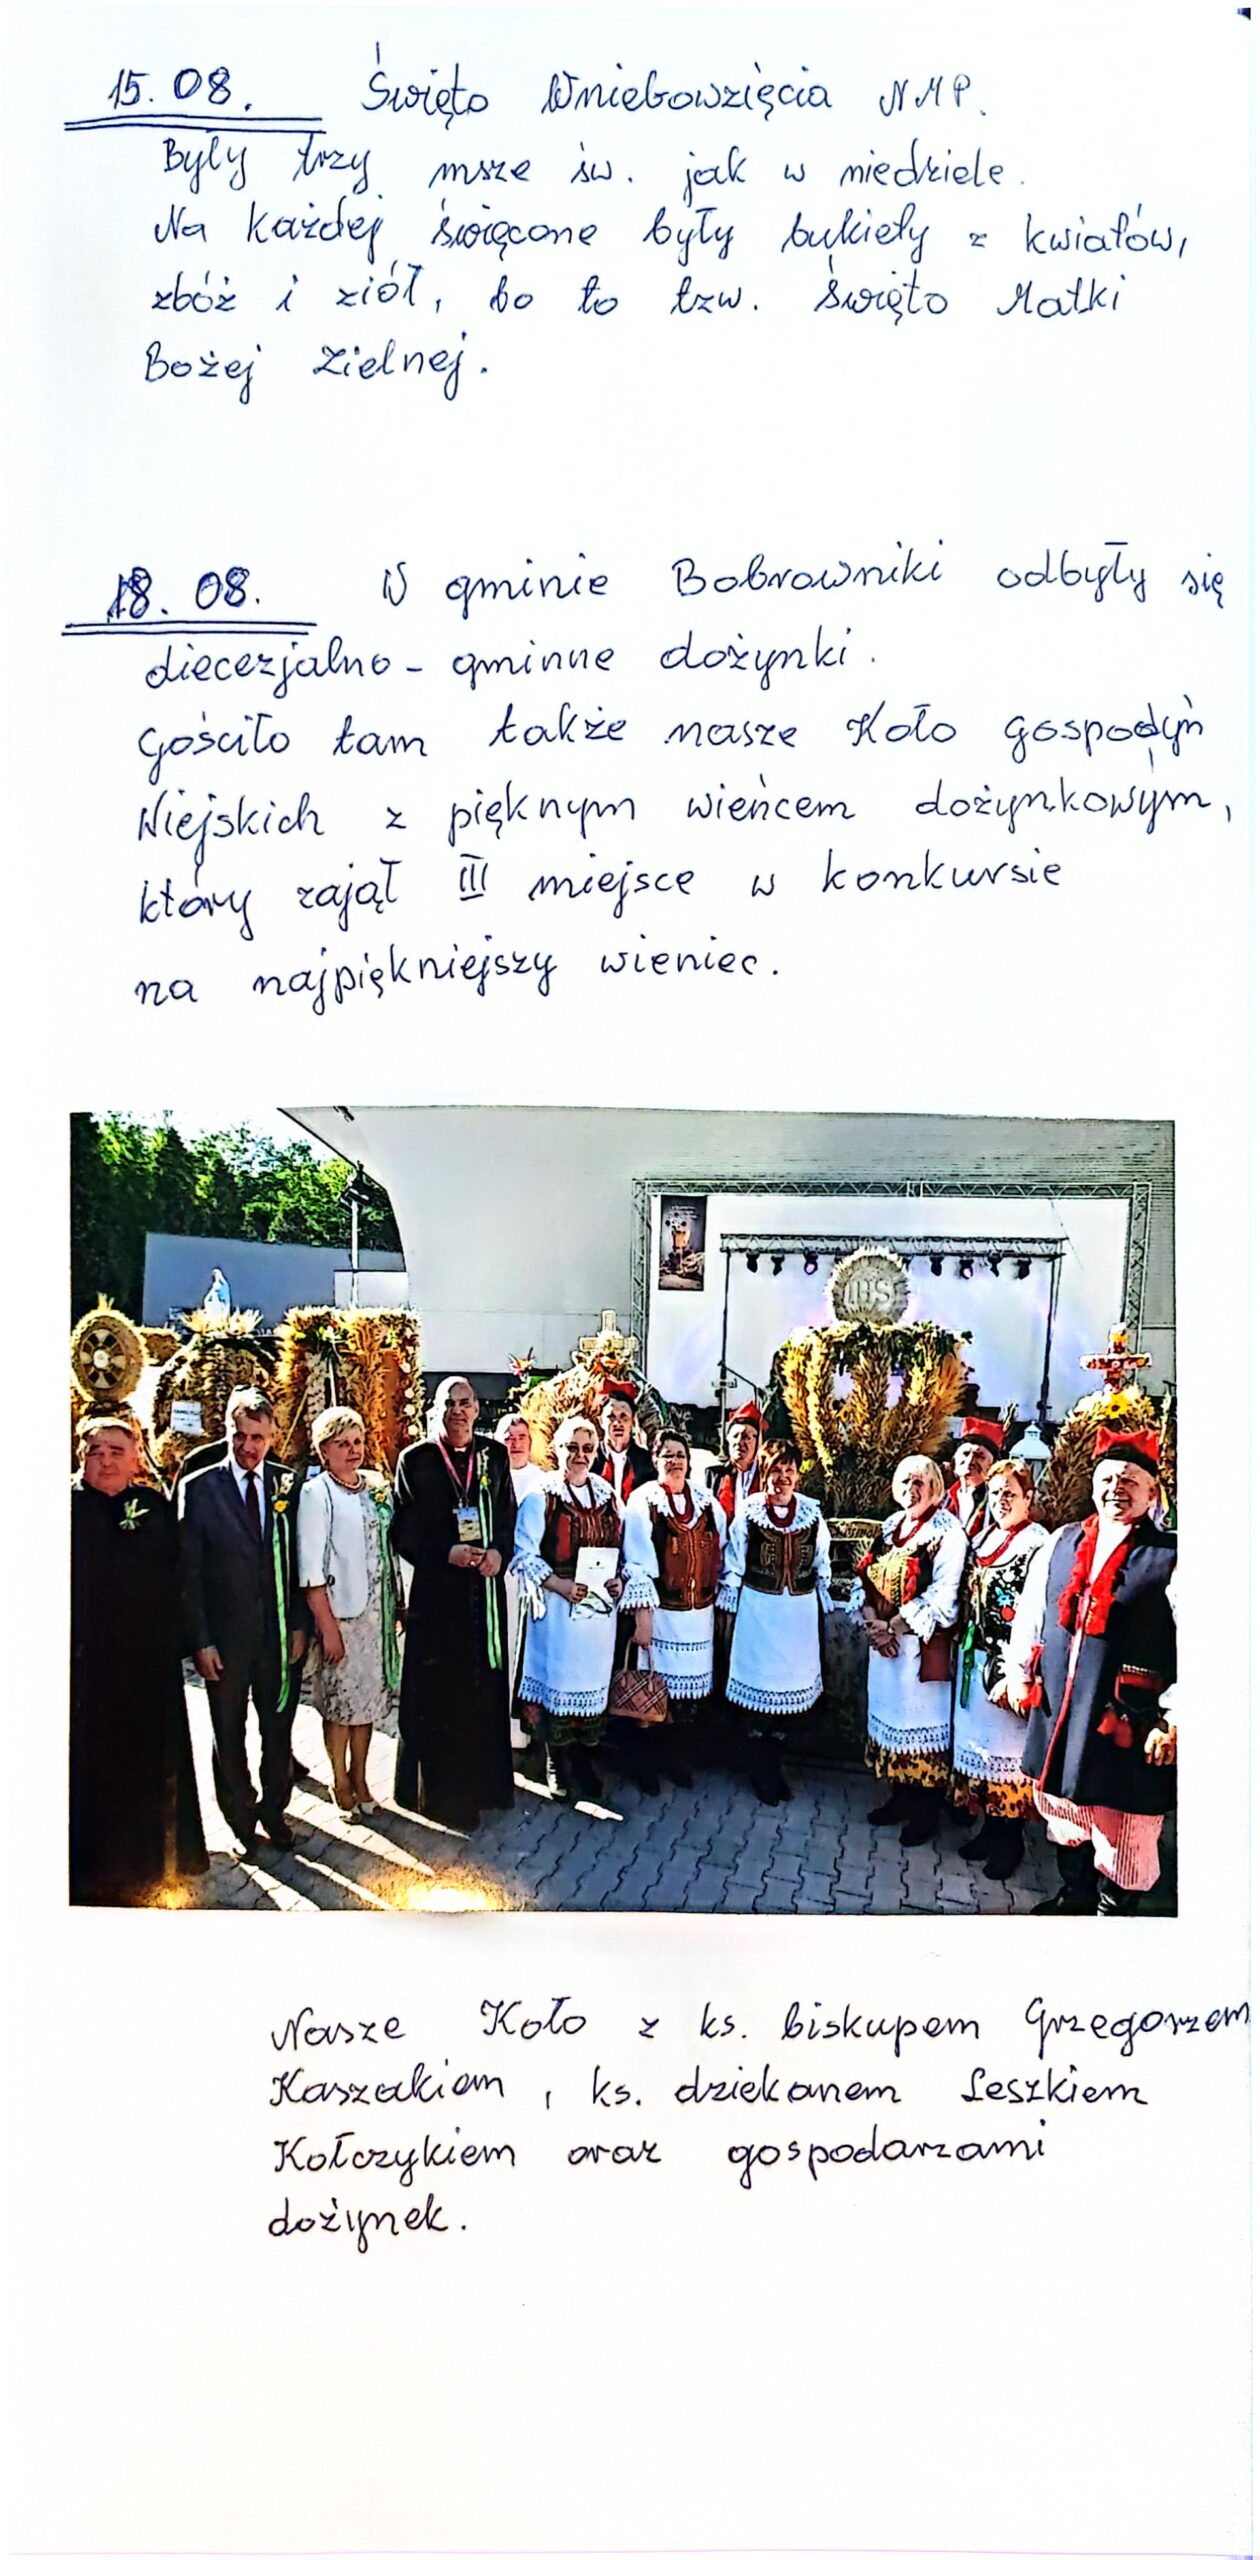 15.08. Święto Wniebowzięcia NMP.
Były trzy msze św. jak w niedziele.
Na każdej święcone były bukiety z kwiatów,
zbóż i ziół, bo to tzw. Święto Matki
Bożej Zielnej.
18.08. W gminie Bobrowniki odbyły się
diecezjalno-gminne dożynki.
Gościło tam także nasze Koło Gospodyń
Wiejskich z pięknym wieńcem dożynkowym,
który zajął III miejsce w konkursie
na najpiękniejszy wieniec.
IHS
Nasze Koło z ks. biskupem Grzegorzem
Kaszakiem, ks. dziekanem Leszkiem
Kołczykiem oraz gospodarzami
dożynek.